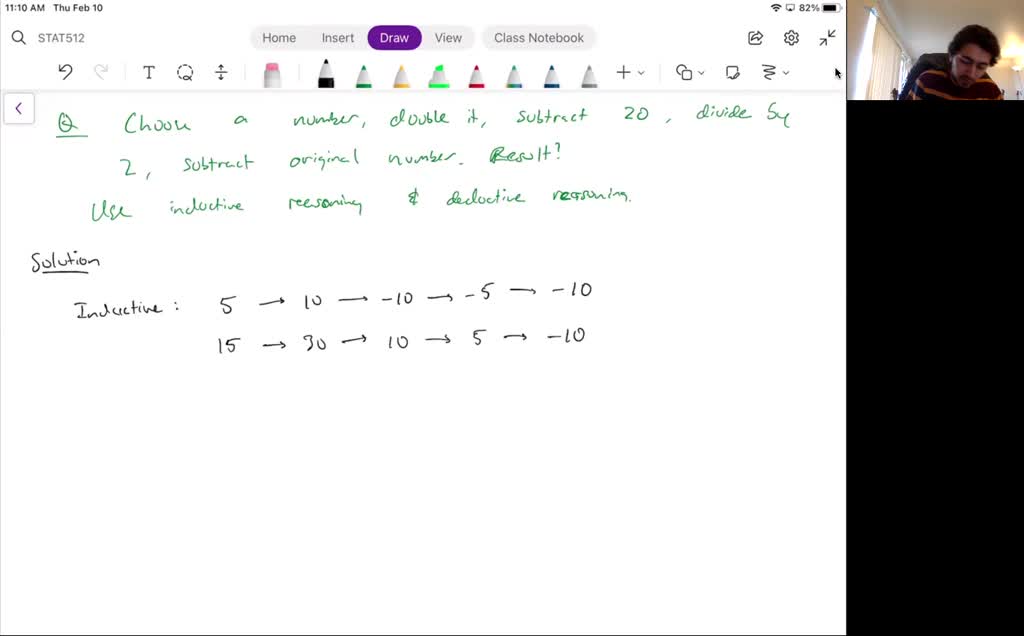 11:10 AM Thu Feb 10
82%
STAT512
Home Insert Draw View Class Notebook
T
Q Choose a number, double it, subtract 20, divide by
2, subtract original number. Result?
Use inductive reasoning & deductive reasoning.
Solution
Inductive: 5 → 10 → -10 → -5 → -10
15 → 30 → 10 → 5 → -10